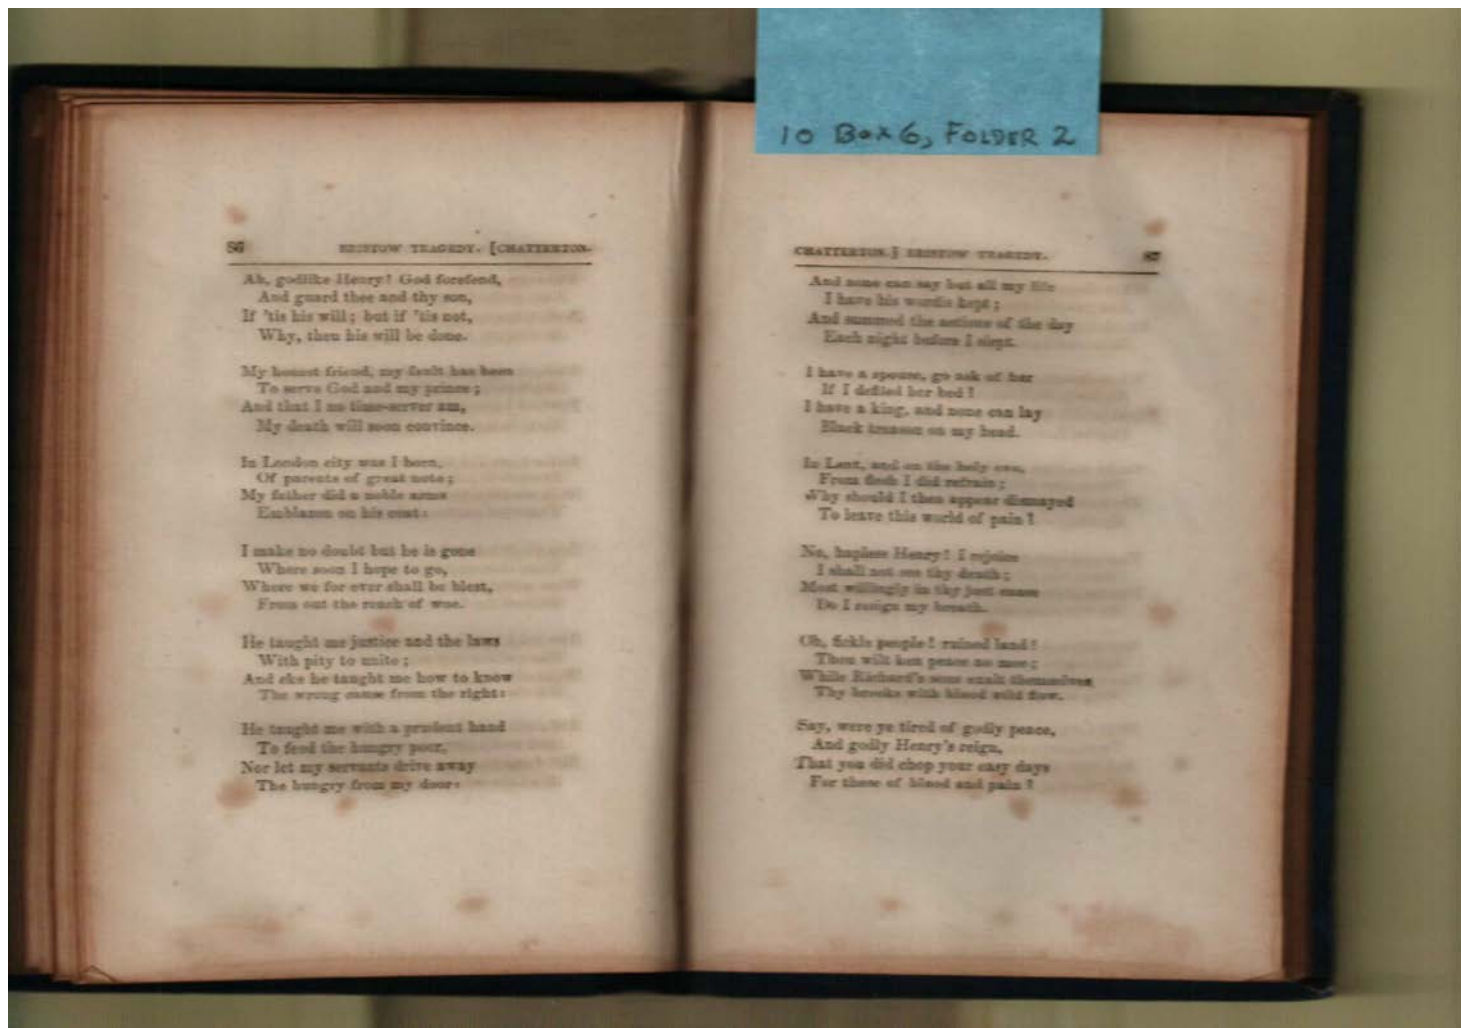 10 BOX 6, FOLDER 2
86 BRISTOW TRAGEDY. [CHATTERTON.
Ah, godlike Henry! God forefend,
And guard thee and thy son,
If 'tis his will; but if 'tis not,
Why, then his will be done.
My honest friend, my fault has been
To serve God and my prince;
And that I no time-server am,
My death will soon convince.
In London city was I born,
Of parents of great note;
My father did a noble arms
Emblazon on his coat:
I make no doubt but he is gone
Where soon I hope to go,
Where we for ever shall be blest,
From out the reach of woe.
He taught me justice and the laws
With pity to unite;
And eke he taught me how to know
The wrong cause from the right:
He taught me with a prudent hand
To feed the hungry poor,
Nor let my servants drive away
The hungry from my door:
CHATTERTON.] BRISTOW TRAGEDY. 87
And none can say but all my life
I have his wordis kept;
And summed the actions of the day
Each night before I slept.
I have a spouse, go ask of her
If I defiled her bed?
I have a king, and none can lay
Black treason on my head.
In Lent, and on the holy eve,
From flesh I did refrain;
Why should I then appear dismayed
To leave this world of pain?
No, hapless Henry! I rejoice
I shall not see thy death;
Most willingly in thy just cause
Do I resign my breath.
Oh, fickle people! ruined land!
Thou wilt ken peace no moe;
While Richard's sons exalt themselves
Thy brooks with blood will flow.
Say, were ye tired of godly peace,
And godly Henry's reign,
That you did chop your easy days
For those of blood and pain?